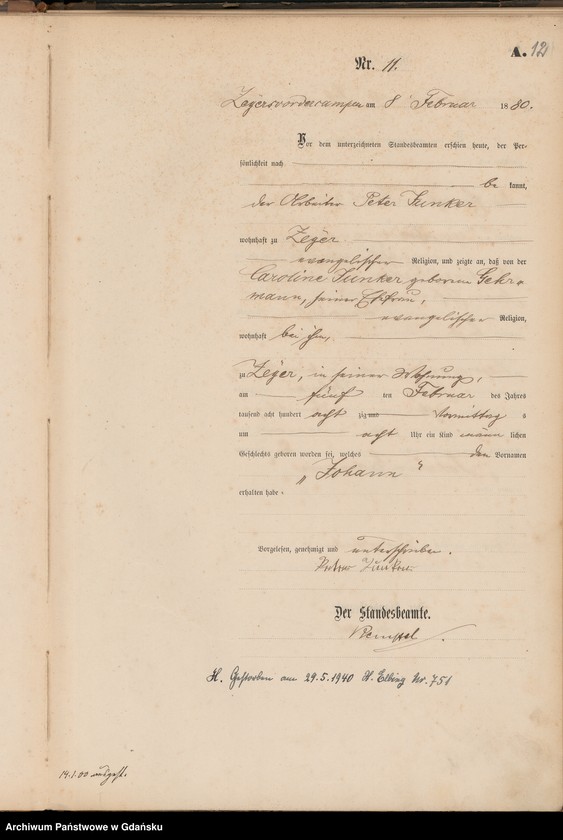 A. 12
Nr. 11.
Zeyersvordercampen am 8 Februar 1880.
Vor dem unterzeichneten Standesbeamten erschien heute, der Per-
sönlichkeit nach
be kannt,
der Arbeiter Peter Junker
wohnhaft zu Zeyer
evangelischer Religion, und zeigte an, daß von der
Caroline Junker geborenen Gehr-
mann, seiner Ehefrau,
evangelischer Religion,
wohnhaft bei ihm,
zu Zeyer, in seiner Wohnung,
am fünf ten Februar des Jahres
tausend acht hundert acht zig und Vormittag s
um acht Uhr ein Kind männ lichen
Geschlechts geboren worden sei, welches den Vornamen
„Johann“
erhalten habe.
Vorgelesen, genehmigt und unterschrieben.
Peter Junker
Der Standesbeamte.
H. Gestorben am 29.5.1940 St. Elbing Nr. 751
14.1.00
Archiwum Państwowe w Gdańsku